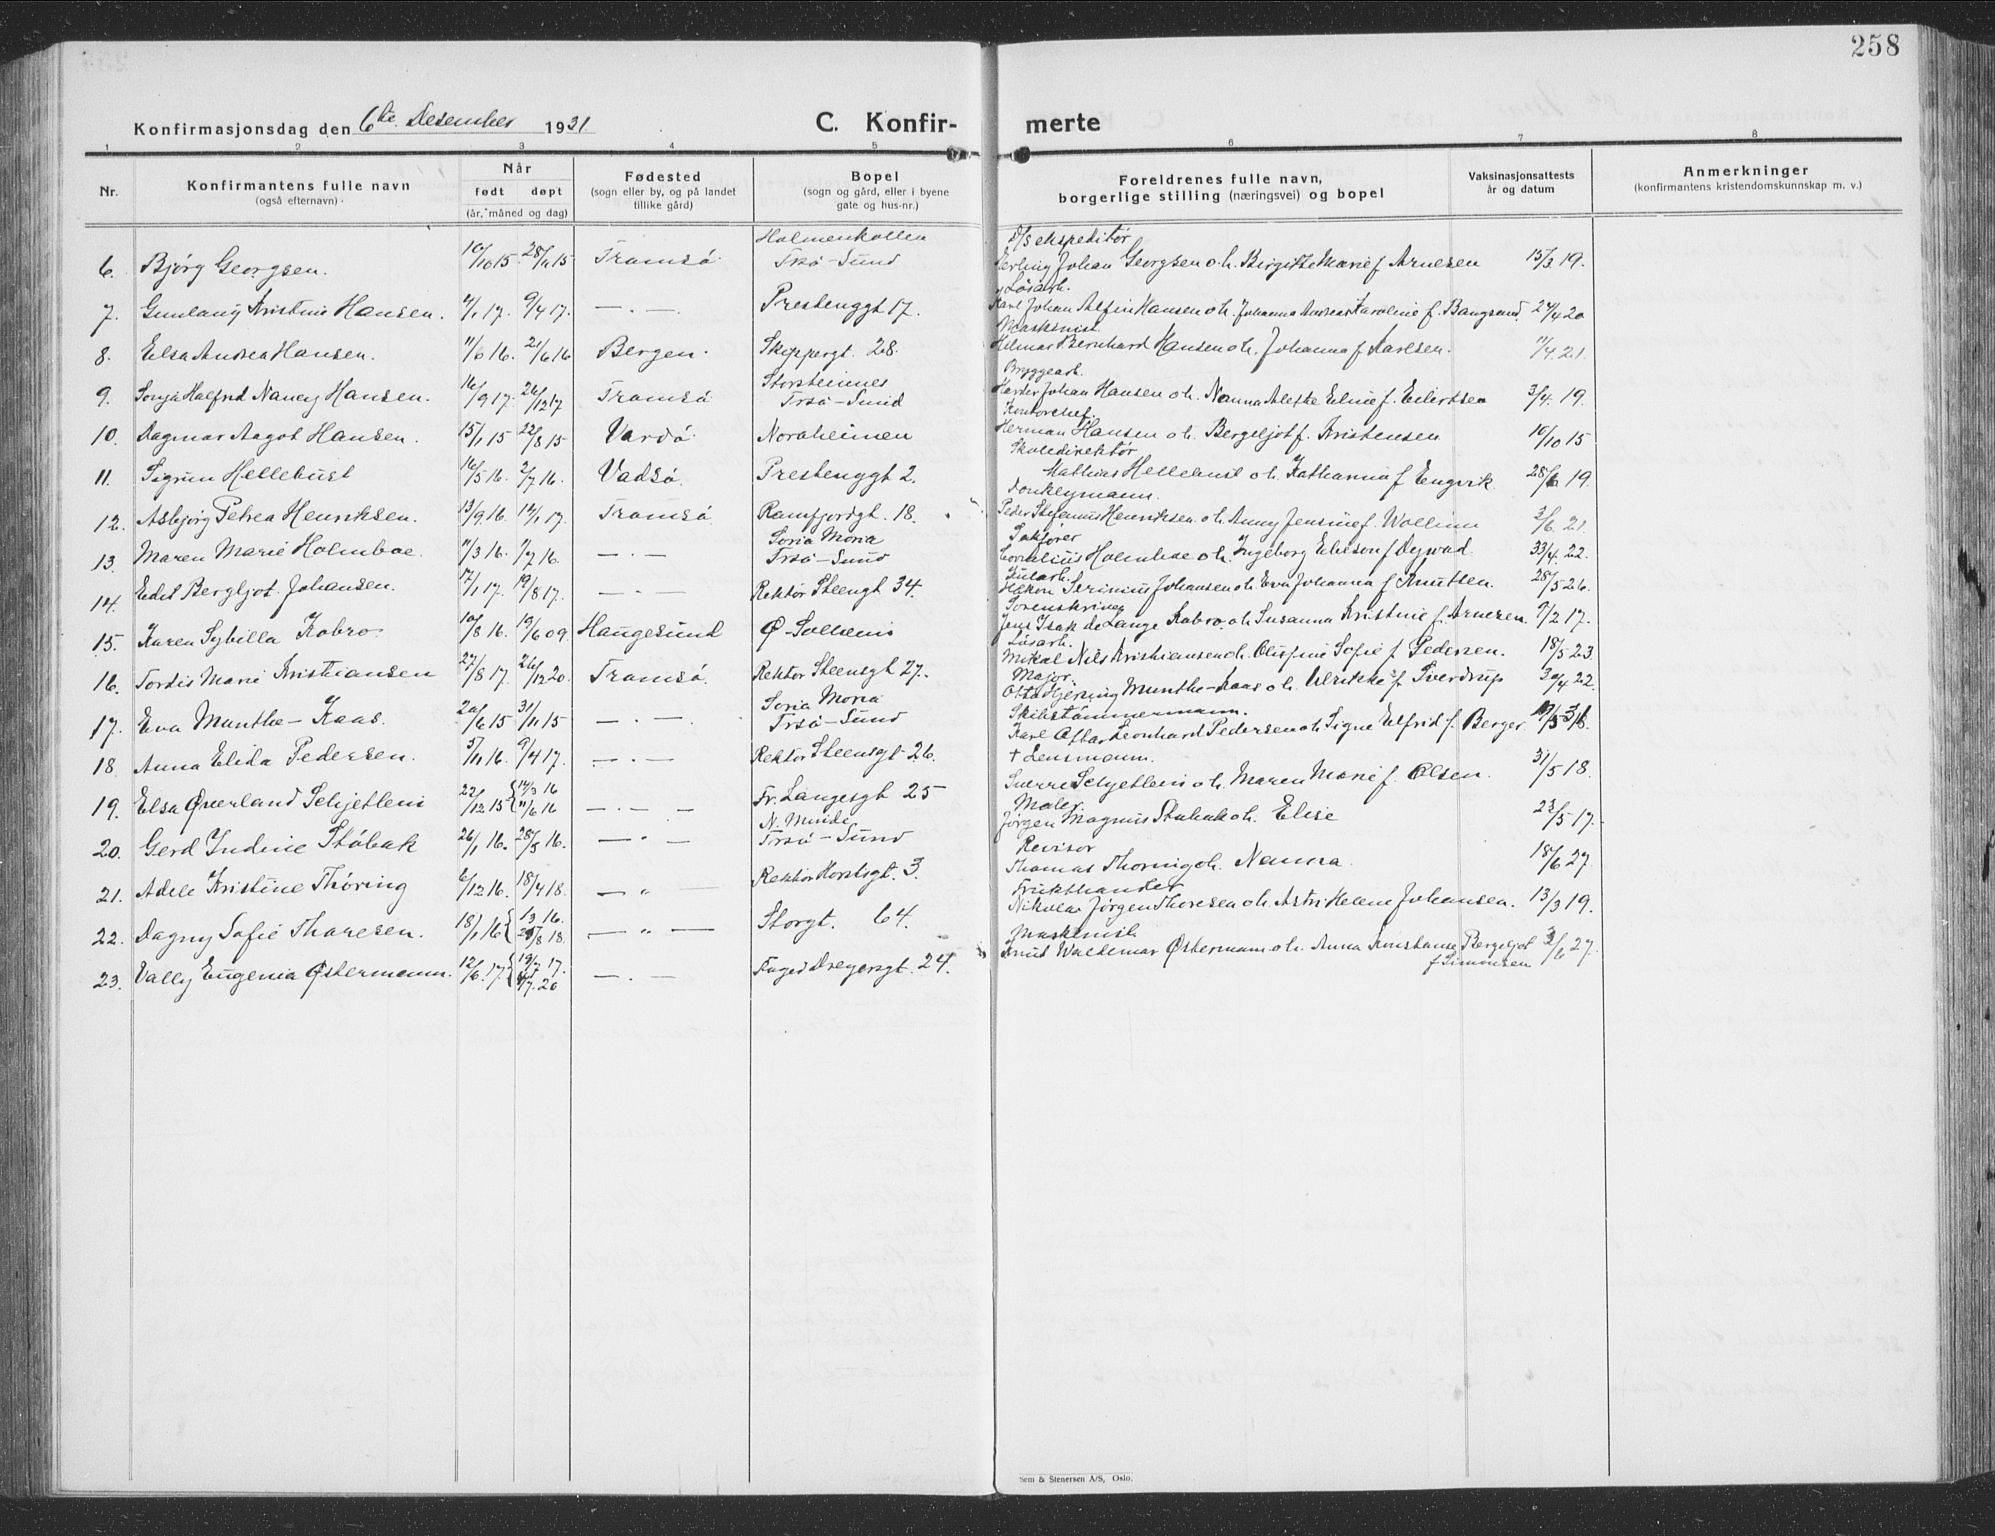 258
Konfirmasjonsdag den 6te Desember 1931
C. Konfir- merte
1 2 3 4 5 6 7 8
Nr.
Konfirmantens fulle navn
(også efternavn)
Når
født døpt
(år, måned og dag)
Fødested
(sogn eller by, og på landet
tillike gård)
Bopel
(sogn og gård, eller i byene
gate og hus-nr.)
Foreldrenes fulle navn,
borgerlige stilling (næringsvei) og bopel
Vaksinasjonsattests
år og datum
Anmerkninger
(konfirmantens kristendomskunnskap m. v.)
Holmenkollen D/S ekspeditør
6. Bjørg Georgsen. 10/10 15. 28/11 15 Tromsø Trsø-Sund Erling Johan Georgsen o.h. Birgitte Marie f Arnesen 15/3 19.
Løsarb.
7. Gunlaug Kristine Hansen. 4/1 17. 9/4 17. — . — Prestenggt 17. Karl Johan Alfin Hansen o.h. Johanna Andrea Karoline f. Bangsund 24/4 20
Maskinist.
8. Elsa Andrea Hansen. 11/6 16. 21/6 16 Bergen. Skippergt. 28. Hilmar Bernhard Hansen o.h. Johanna f Karlsen. 11/4. 21.
Storsteinnes Bryggearb.
9. Sonja Halfrid Nancy Hansen. 16/9 17. 26/12 17 Tromsø Trsø-Sund Johan Hansen o.h. Nanna Alefke Eline f. Eilertsen 3/4. 19.
Kontorchef.
10. Dagmar Aagot Hansen. 15/1 15 22/8 15 Vardø Noraheimen Herman Hansen o.h. Bergljot f. Kristensen 10/10 15
Skoledirektør
11. Sigrun Hellebust 16/5 16. 2/7 16. Vadsø. Prestenggt 2. Mathias Hellebust o.h. Katharina f Engvik. 28/6 19.
Donkeymann.
12. Asbjørg Petrea Henriksen. 13/9 16. 14/1 17. Tromsø Ramfjordgt. 18. Peder Stefanus Henriksen o.h. Anny Jensine f. Wollinn 3/6. 21.
Soria Moria Sakfører
13. Maren Marie Holmboe. 11/3 16. 1/7 16. — . — Trsø-Sund Cornelius Holmboe o.h. Ingeborg Elieson f Dyvad. 23/4. 22.
14. Edit Bergljot Johansen. 17/1 17. 19/8 17. — . — Rektor Steengt 34. Håkon Severinius Johansen o.h. Eva Johanna f Knutsen. 28/5 26.
Sorenskriver
15. Karen Sybilla Kobro. 10/8 16. 19/6 09. Haugesund Ø-Solheim Jens Isak de Lange Kobro. o.h. Susanna Kristine f. Arnesen. 9/2 17.
Løsarb.
16. Tordis Marie Kristiansen 27/8 17. 26/12 20. Tromsø. Rektor Steensgt 27. Mikal Nils Kristiansen o.h. Olufine Sofie f Pedersen. 18/5 23.
Soria Moria Major.
17. Eva Munthe-Kaas. 20/6 15 31/10 15 — . — Trsø-Sund Otto Hjersing Munthe-Kaas o.h. Ulrikke f. Sverdrup 30/4 22.
Skibstømmermann.
18. Anna Elida Pedersen. 5/11 16. 9/4 17. — . — Rektor Steensgt 26. Karl Ottar Leonhard Pedersen o.h. Signe Elfrid f. Berger.
† Lensmann.
19. Elsa Øverland Schjetlein 22/12 15 { 14/3 16 11/6 16 — . — Fr. Langesgt 25 Sverre Schjetlein o.h. Maren Marie f. Olsen. 31/5 18.
N. Minde Maler.
20. Gerd Indine Støbak 26/1 16. 28/5 16. — " — Trsø-Sund Jørgen Magnus Støbak o.h. Elise 23/5 17.
Revisor
21. Adele Kristine Thøring 6/12 16. 18/4 18. — " — Rektor Horstsgt. 3. Thomas Thøring o.h. Nanna. 18/6 27.
Frukthandler
22. Dagny Sofie Thoresen. 18/1 16 — " — Storgt. 64. Nikolai Jørgen Thoresen o.h. Astri Helene Johansen. 13/3 19.
Maskinist
23. Vally Eugenia Østermann. 12/6. 17. — . — Foged Dreyersgt. 24. Knut Waldemar Østermann o.h. Anna Konstanse Bergljot 3/6 27.
f Simonsen
Sem & Stenersen A/S, Oslo.